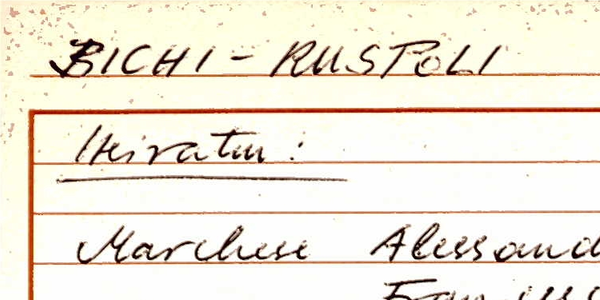 BICHI - RUSPOLI
Heiraten :
Marchese Alessand